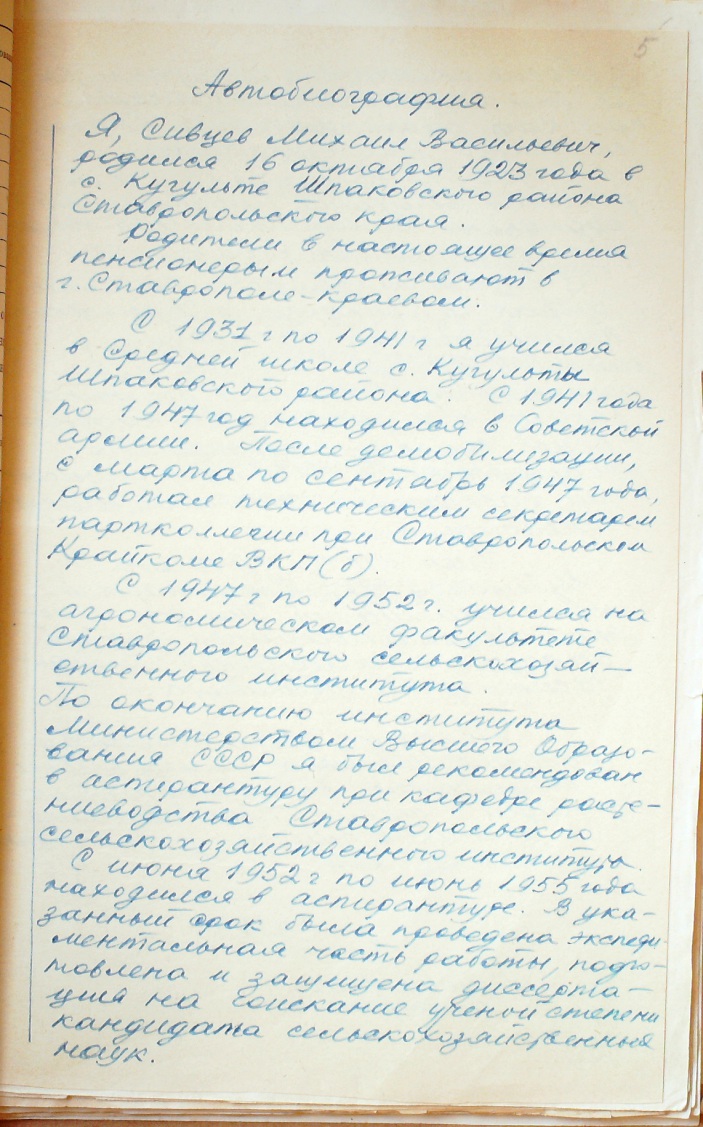 5
Автобиография.
Я, Сивцев Михаил Васильевич,
родился 16 октября 1923 года в
с. Кугульте Шпаковского района
Ставропольского края.
Родители в настоящее время
пенсионерым проживают в
г. Ставрополе-краевом.
С 1931 г по 1941 г я учился
в Средней школе с. Кугульты
Шпаковского района. С 1941 года
по 1947 год находился в Советской
армии. После демобилизации,
с марта по сентябрь 1947 года,
работал техническим секретарем
партколлегии при Ставропольском
Крайкоме ВКП(б).
С 1947 г по 1952 г. учился на
агрономическом факультете
Ставропольского сельскохозяй-
ственного института.
По окончанию института
Министерством Высшего Образо-
вания СССР я был рекомендован
в аспирантуру при кафедре расте-
ниеводства Ставропольского
сельскохозяйственного института.
С июня 1952 г по июнь 1955 года
находился в аспирантуре. В ука-
занный срок была проведена экспери-
ментальная часть работы, подго-
товлена и защищена диссерта-
ция на соискание ученой степени
кандидата сельскохозяйственных
наук.